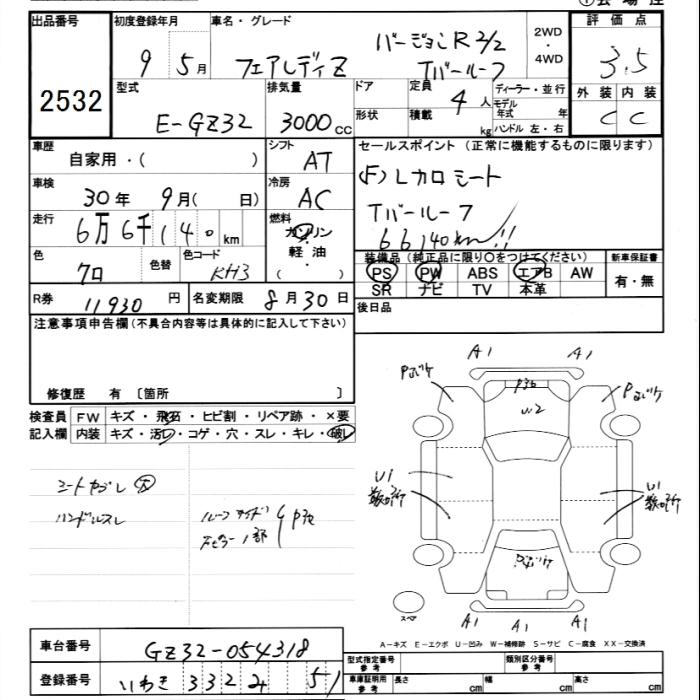 出品番号 初度登録年月 車名・グレード 2WD・4WD 評価点
2532
9 5月 フェアレディZ バージョンR 2/2 Tバールーフ 3.5
型式 排気量 ドア 定員 4人 ディーラー・並行 外装 内装
E-GZ32 3000cc 形状 積載 kg モデル年式 年 C C
ハンドル 左・右
車歴 自家用・( ) シフト AT セールスポイント (正常に機能するものに限ります)
車検 30年 9月( 日) 冷房 AC (F)レカロシート
走行 6万6千140km 燃料 ガソリン・軽油・( ) Tバールーフ
66140km!!
色 クロ 色替 色コード KH3 装備品 (純正品に限り〇をつけてください) 新車保証書
PS PW ABS エアB AW 有・無
SR ナビ TV 本革
R券 11930円 名変期限 8月30日 後日品
注意事項申告欄(不具合内容等は具体的に記入して下さい)
修復歴 有 〔箇所 〕
検査員 FW キズ・飛石・ヒビ割・リペア跡・×要
記入欄 内装 キズ・汚レ・コゲ・穴・スレ・キレ・破レ
シートヤブレ
ハンドルスレ
A1 A1
P36
W2
U1 U1
A1 A1 A1
スペア
A-キズ E-エクボ U-凹み W-補修跡 S-サビ C-腐食 XX-交換済
車台番号 GZ32-054318
登録番号 いわき 332 51
型式指定番号 参考 類別区分番号 参考
車庫証明用 参考 長さ cm 幅 cm 高さ cm